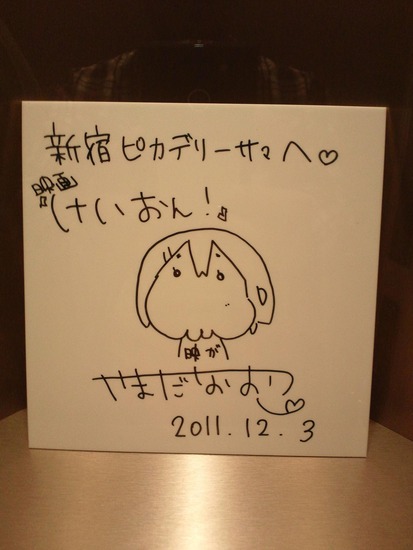 新宿ピカデリーサマへ♡
映画
けいおん!
映が
やまだなおこ
2011.12.3